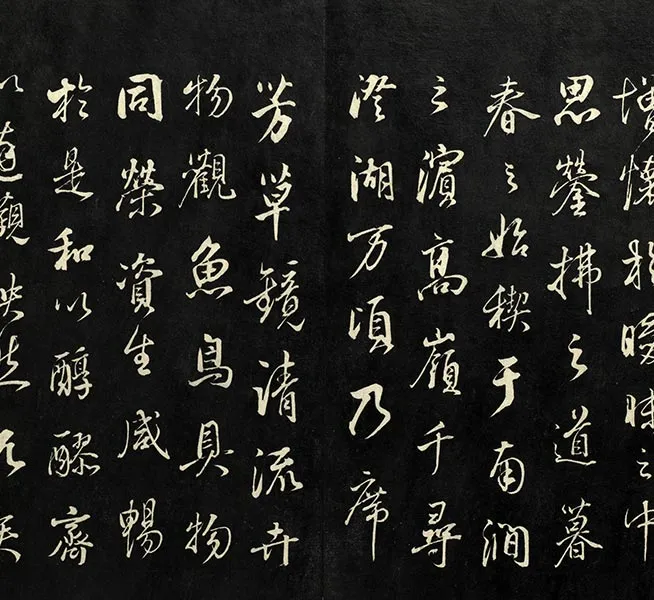 增懷於曖昧之中
思鎣拂之道暮
春之始禊于南澗
之濱高嶺千尋
澄湖万頃乃席
芳草鏡清流卉
物觀魚鳥具物
同榮資生咸暢
於是和以醇醪齊
以達觀然兀矣